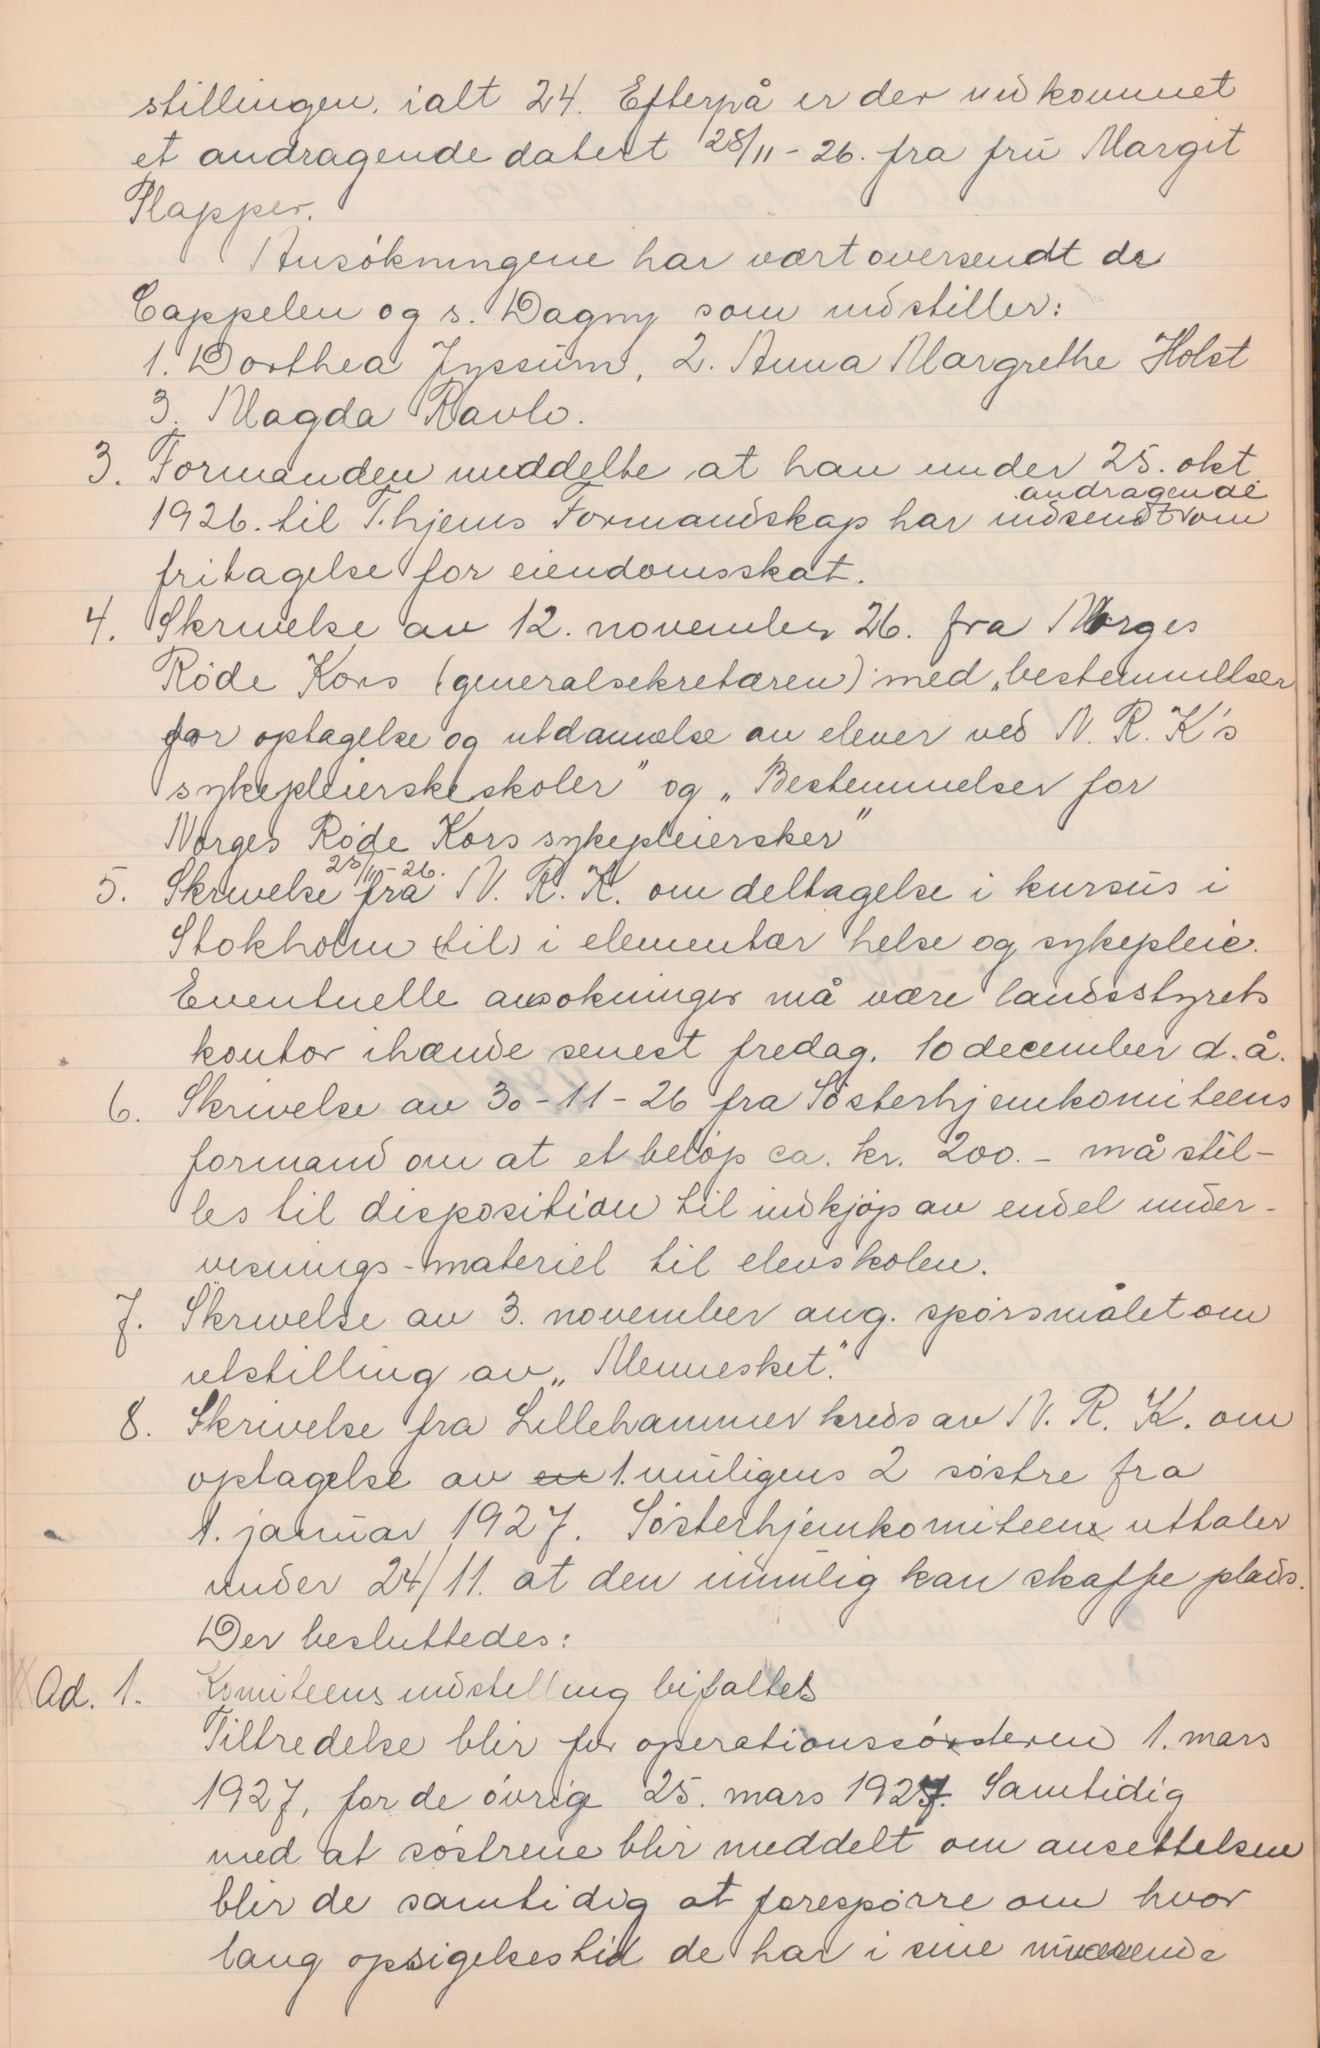 stillingen, ialt 24. Efterpå er der indkommet
et andragende datert 28/11-26. fra fru Margit
Plapper.
Ansökningene har vært oversendt dr
Cappelen og s. Dagny som indstiller:
1. Dorthea Jyssum, 2. Anna Margrethe Holst
3. Magda Ravlo.
3. Formanden meddelte at han under 25. okt
1926. til T.hjems Formandskap har indsendt andragende om
fritagelse for eiendomsskat.
4. Skrivelse av 12. november 26. fra Norges
Röde Kors (generalsekretæren) med „bestemmelser
for optagelse og utdannelse av elever ved N. R. K's
sykepleierskeskoler" og „Bestemmelser for
Norges Röde Kors sykepleiersker"
5. Skrivelse 25/11-26. fra N. R. K. om deltagelse i kursus i
Stokholm (til) i elementær helse og sykepleie.
Eventuelle ansökninger må være landsstyrets
kontor ihænde senest fredag. 10 december d.å.
6. Skrivelse av 30-11-26 fra Sösterhjemkomiteens
formand om at et belöp ca. kr. 200.- må stil-
les til disposition til indkjöp av endel under-
visnings-materiel til elevskolen.
7. Skrivelse av 3. november ang. spörsmålet om
utstilling av „Mennesket".
8. Skrivelse fra Lillehammer kreds av N. R. K. om
optagelse av en 1. muligens 2 söstre fra
1. januar 1927. Sösterhjemkomiteen uttaler
under 24/11. at den umulig kan skaffe plads.
Der besluttedes:
Ad. 1. Komiteens indstilling bifaltes
Tiltredelse blir for operationssösteren 1. mars
1927, for de övrige 25. mars 1927. Samtidig
med at söstrene blir meddelt om ansettelsen
blir de samtidig at forespörre om hvor
lang opsigelsestid de har i sine nuværende